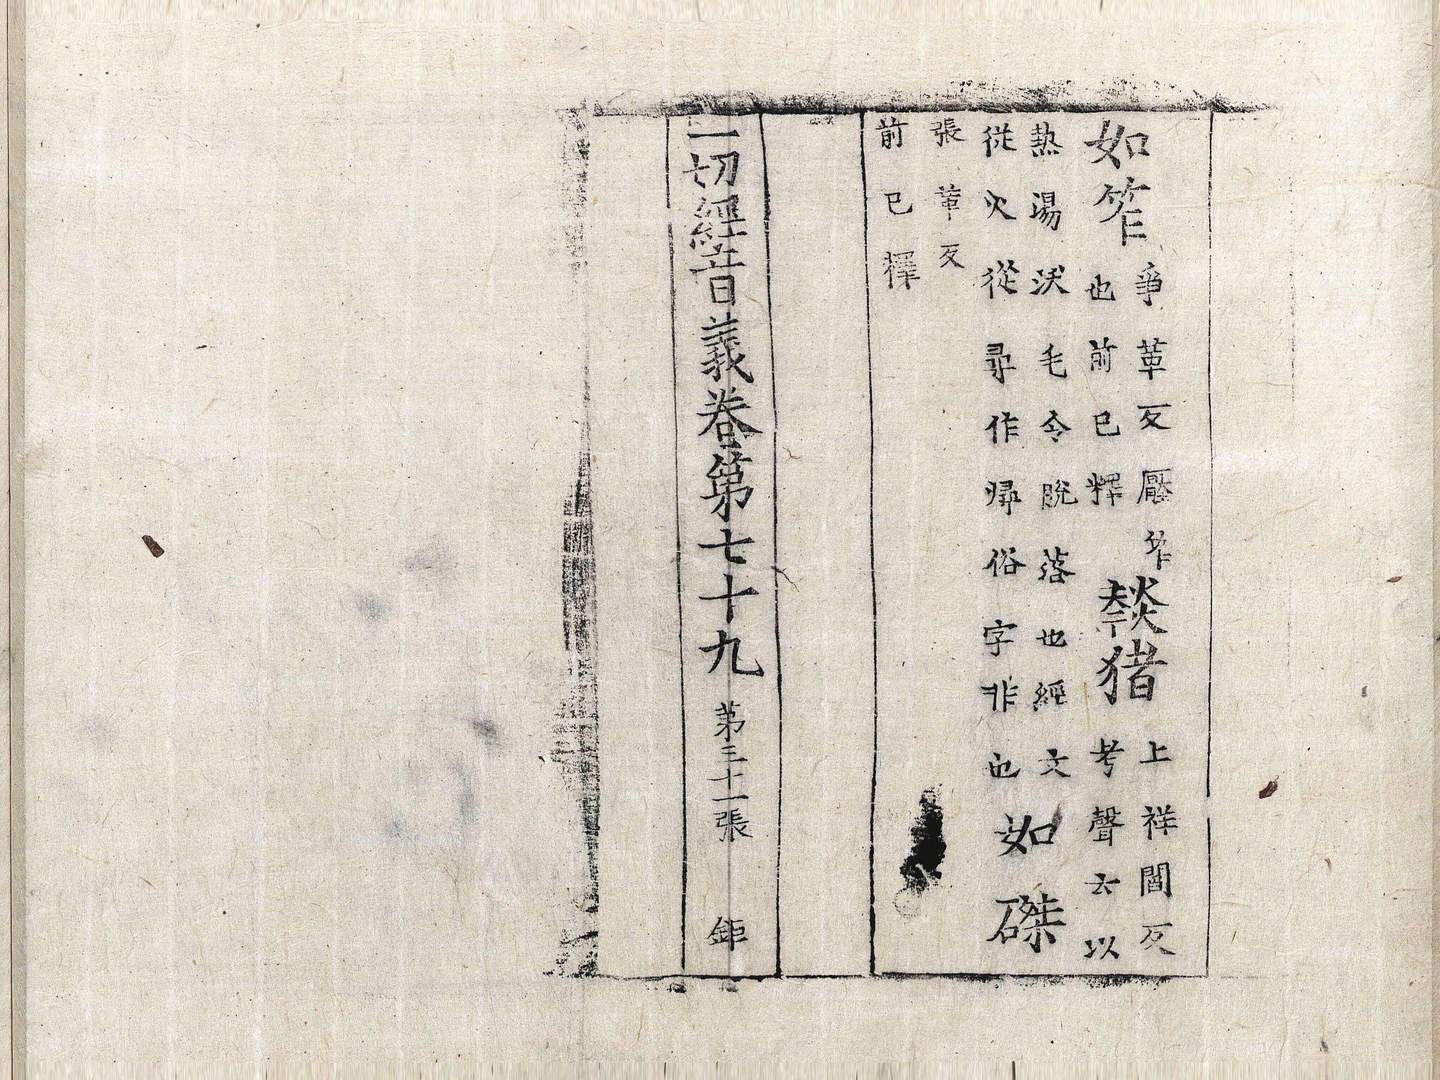 如笮爭革反壓笮也前已釋燅猪上祥閻反考聲云以
熱湯沃毛令脫落也經文從火從尋作燖俗字非也如磔
張革反前已釋
一切經音義卷第七十九 第三十一張 鉅